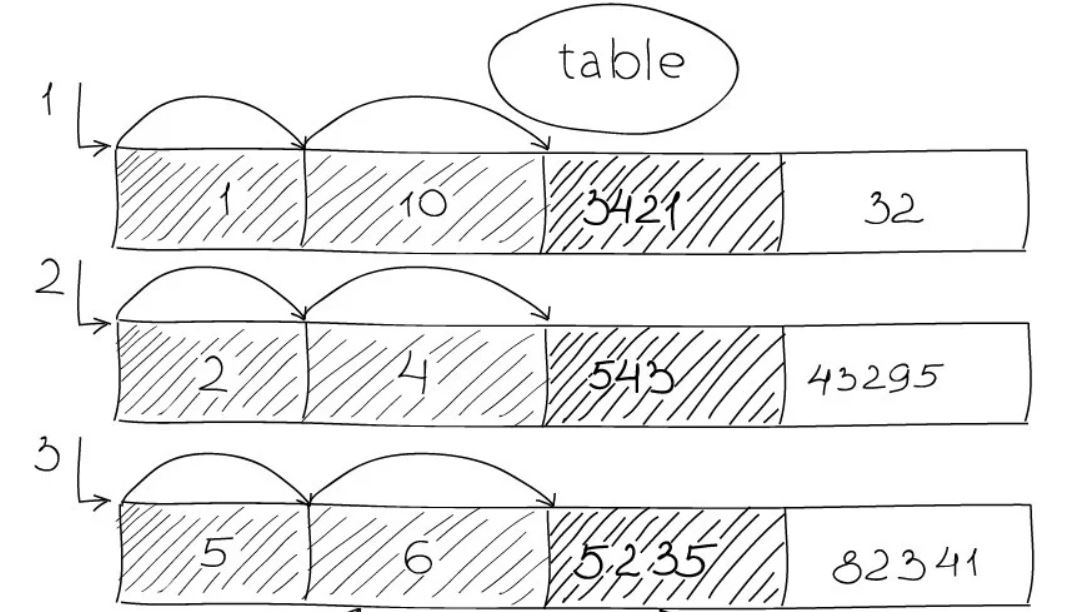 table
1
1 10 3421 32
2
2 4 543 43295
3
5 6 5235 82341